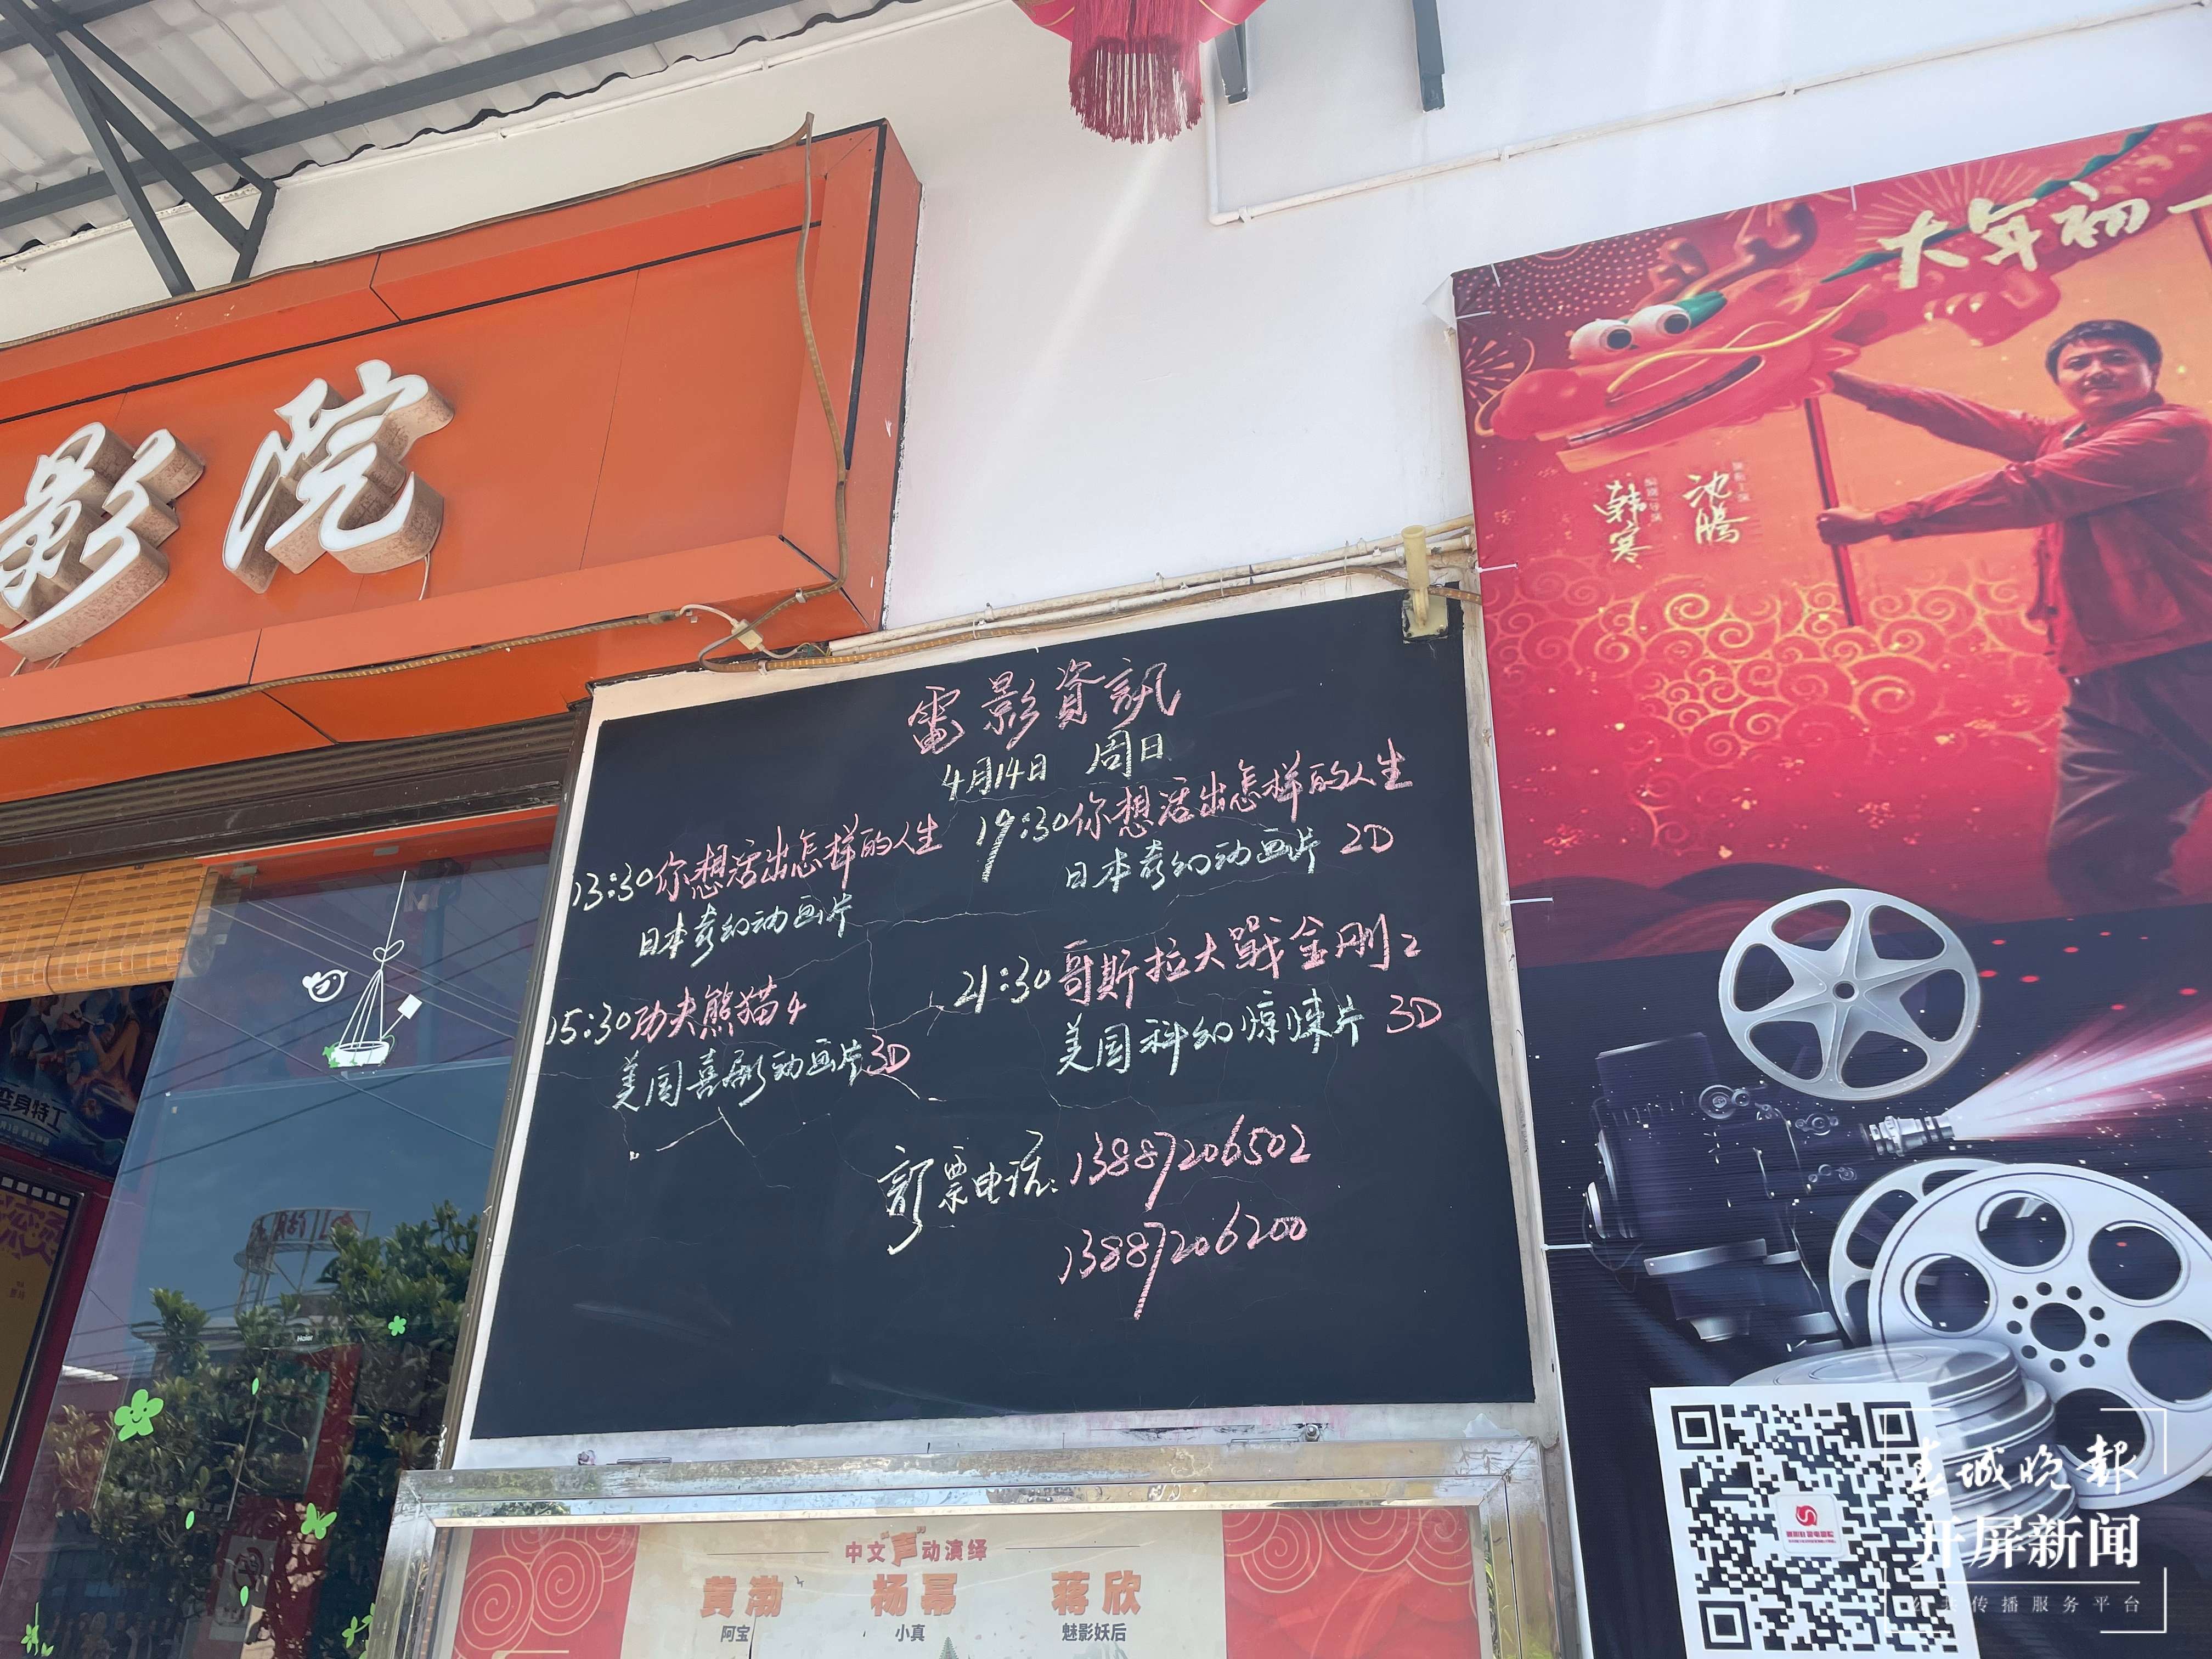 影院
電影資訊
4月14日 周日
13:30你想活出怎样的人生
日本奇幻动画片
15:30功夫熊猫4
美国喜剧动画片3D
19:30你想活出怎样的人生
日本奇幻动画片 2D
21:30哥斯拉大戰金刚2
美国科幻惊悚片 3D
訂票电话:13887206502
13887206200
大年初一
韩寒
沈腾
变身特工
Haier
中文"声"动演绎
黄渤 杨幂 蒋欣
阿宝 小真 魅影妖后
春城晚报
开屏新闻
公共传播服务平台